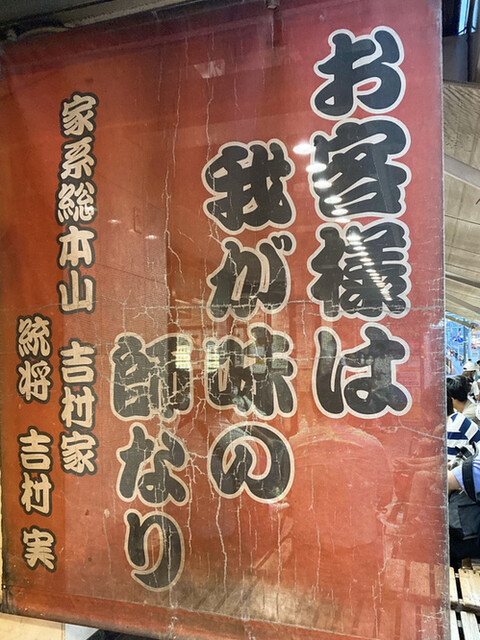 お客様は
我が味の
師なり
家系総本山 吉村家
統将 吉村 実